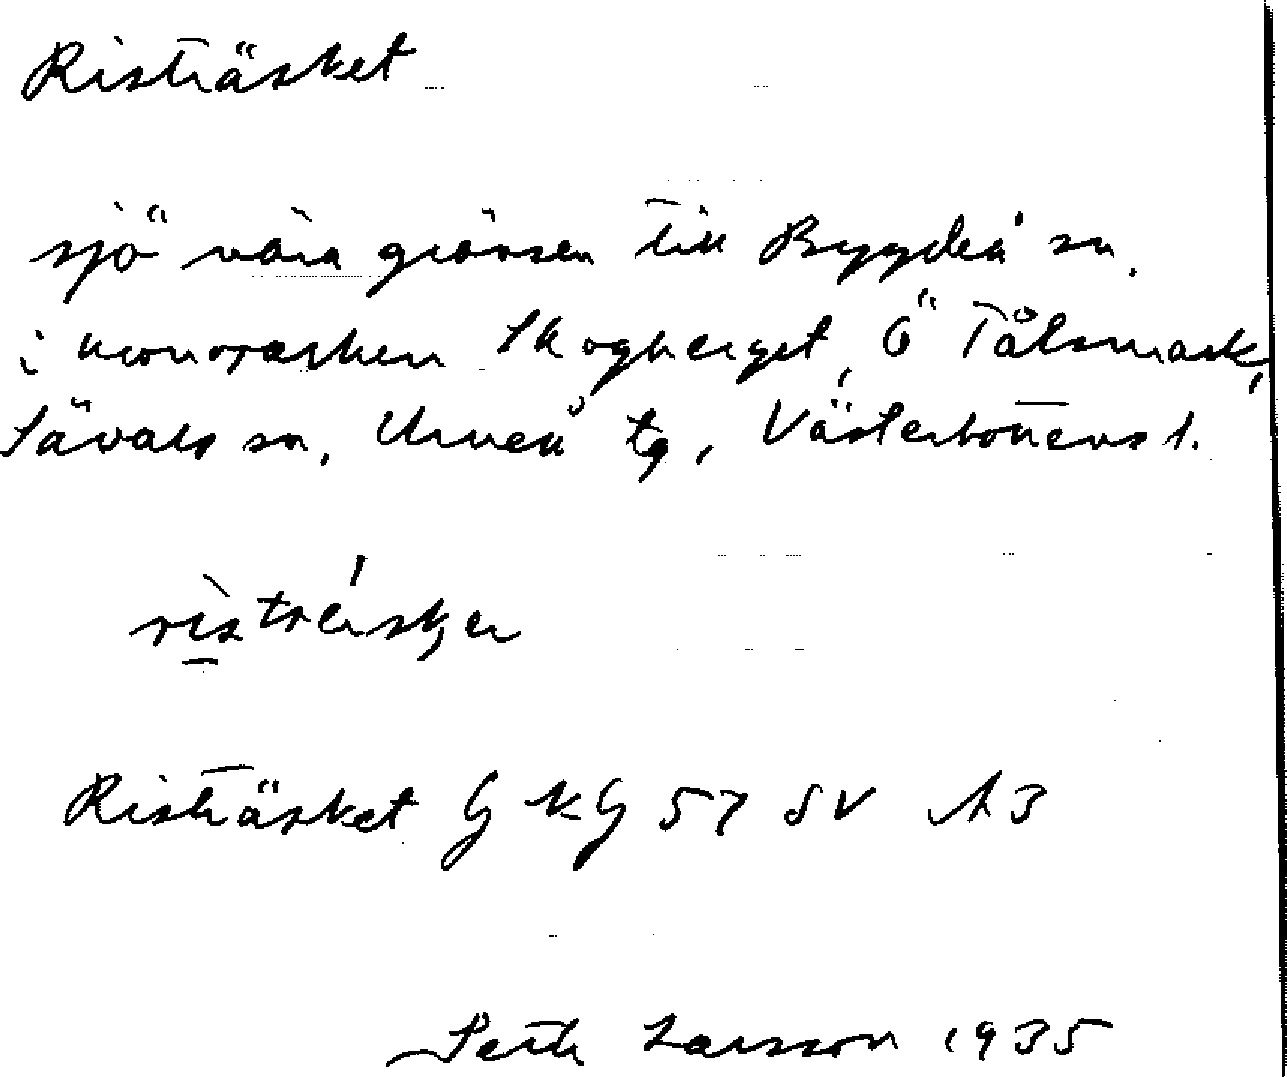 Risträsket
sjö nära gränsen till Bygdeå sn.
i kronoparken Skogberget, Ö Tålsmark,
Sävars sn, Umeå tg, Västerbottens l.
Risträsket GKG 57 SV A3
Seth Larsson 1935